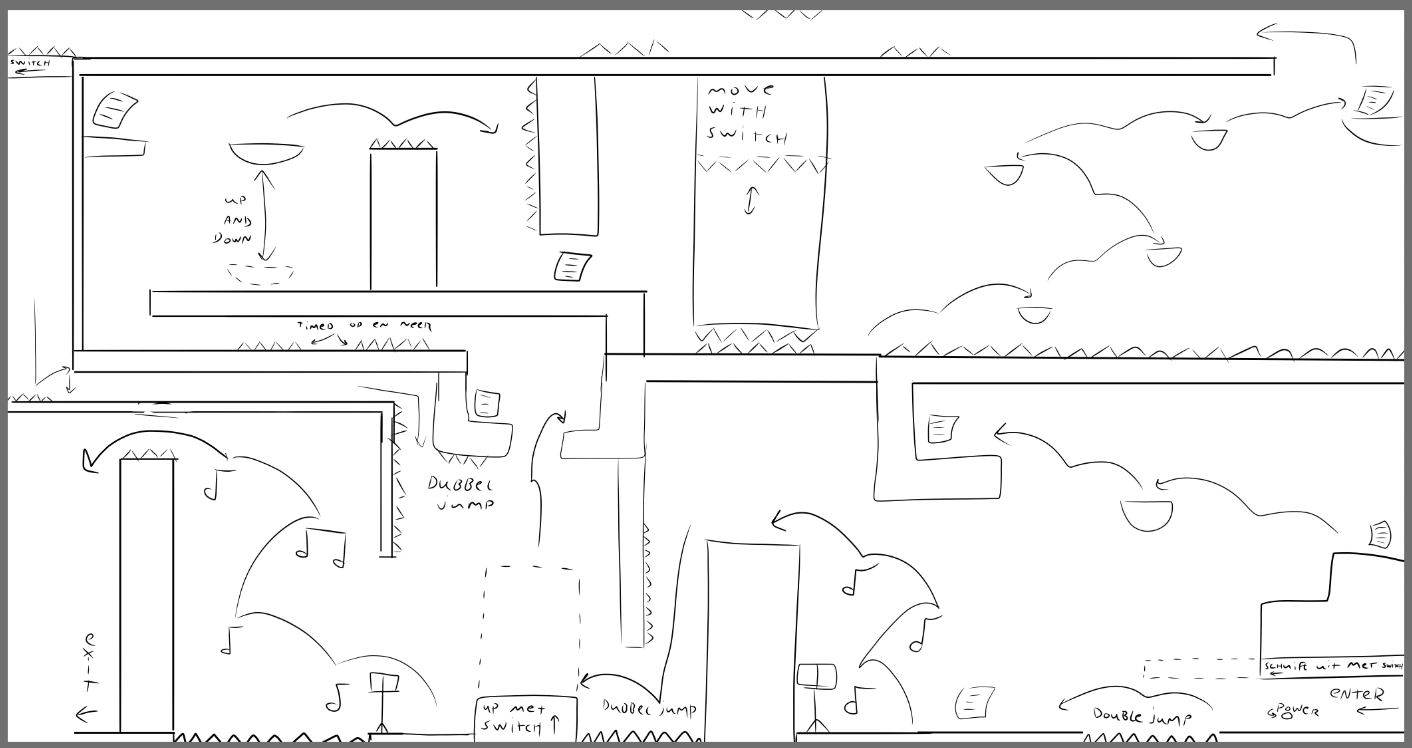 SWITCH
MOVE
WITH
SWITCH
UP
AND
DOWN
TIMED OP EN NEER
DUBBEL
JUMP
EXIT
UP MET
SWITCH
DUBBEL JUMP
DOUBLE JUMP
SCHUIFT UIT MET SWITCH
POWER
ENTER